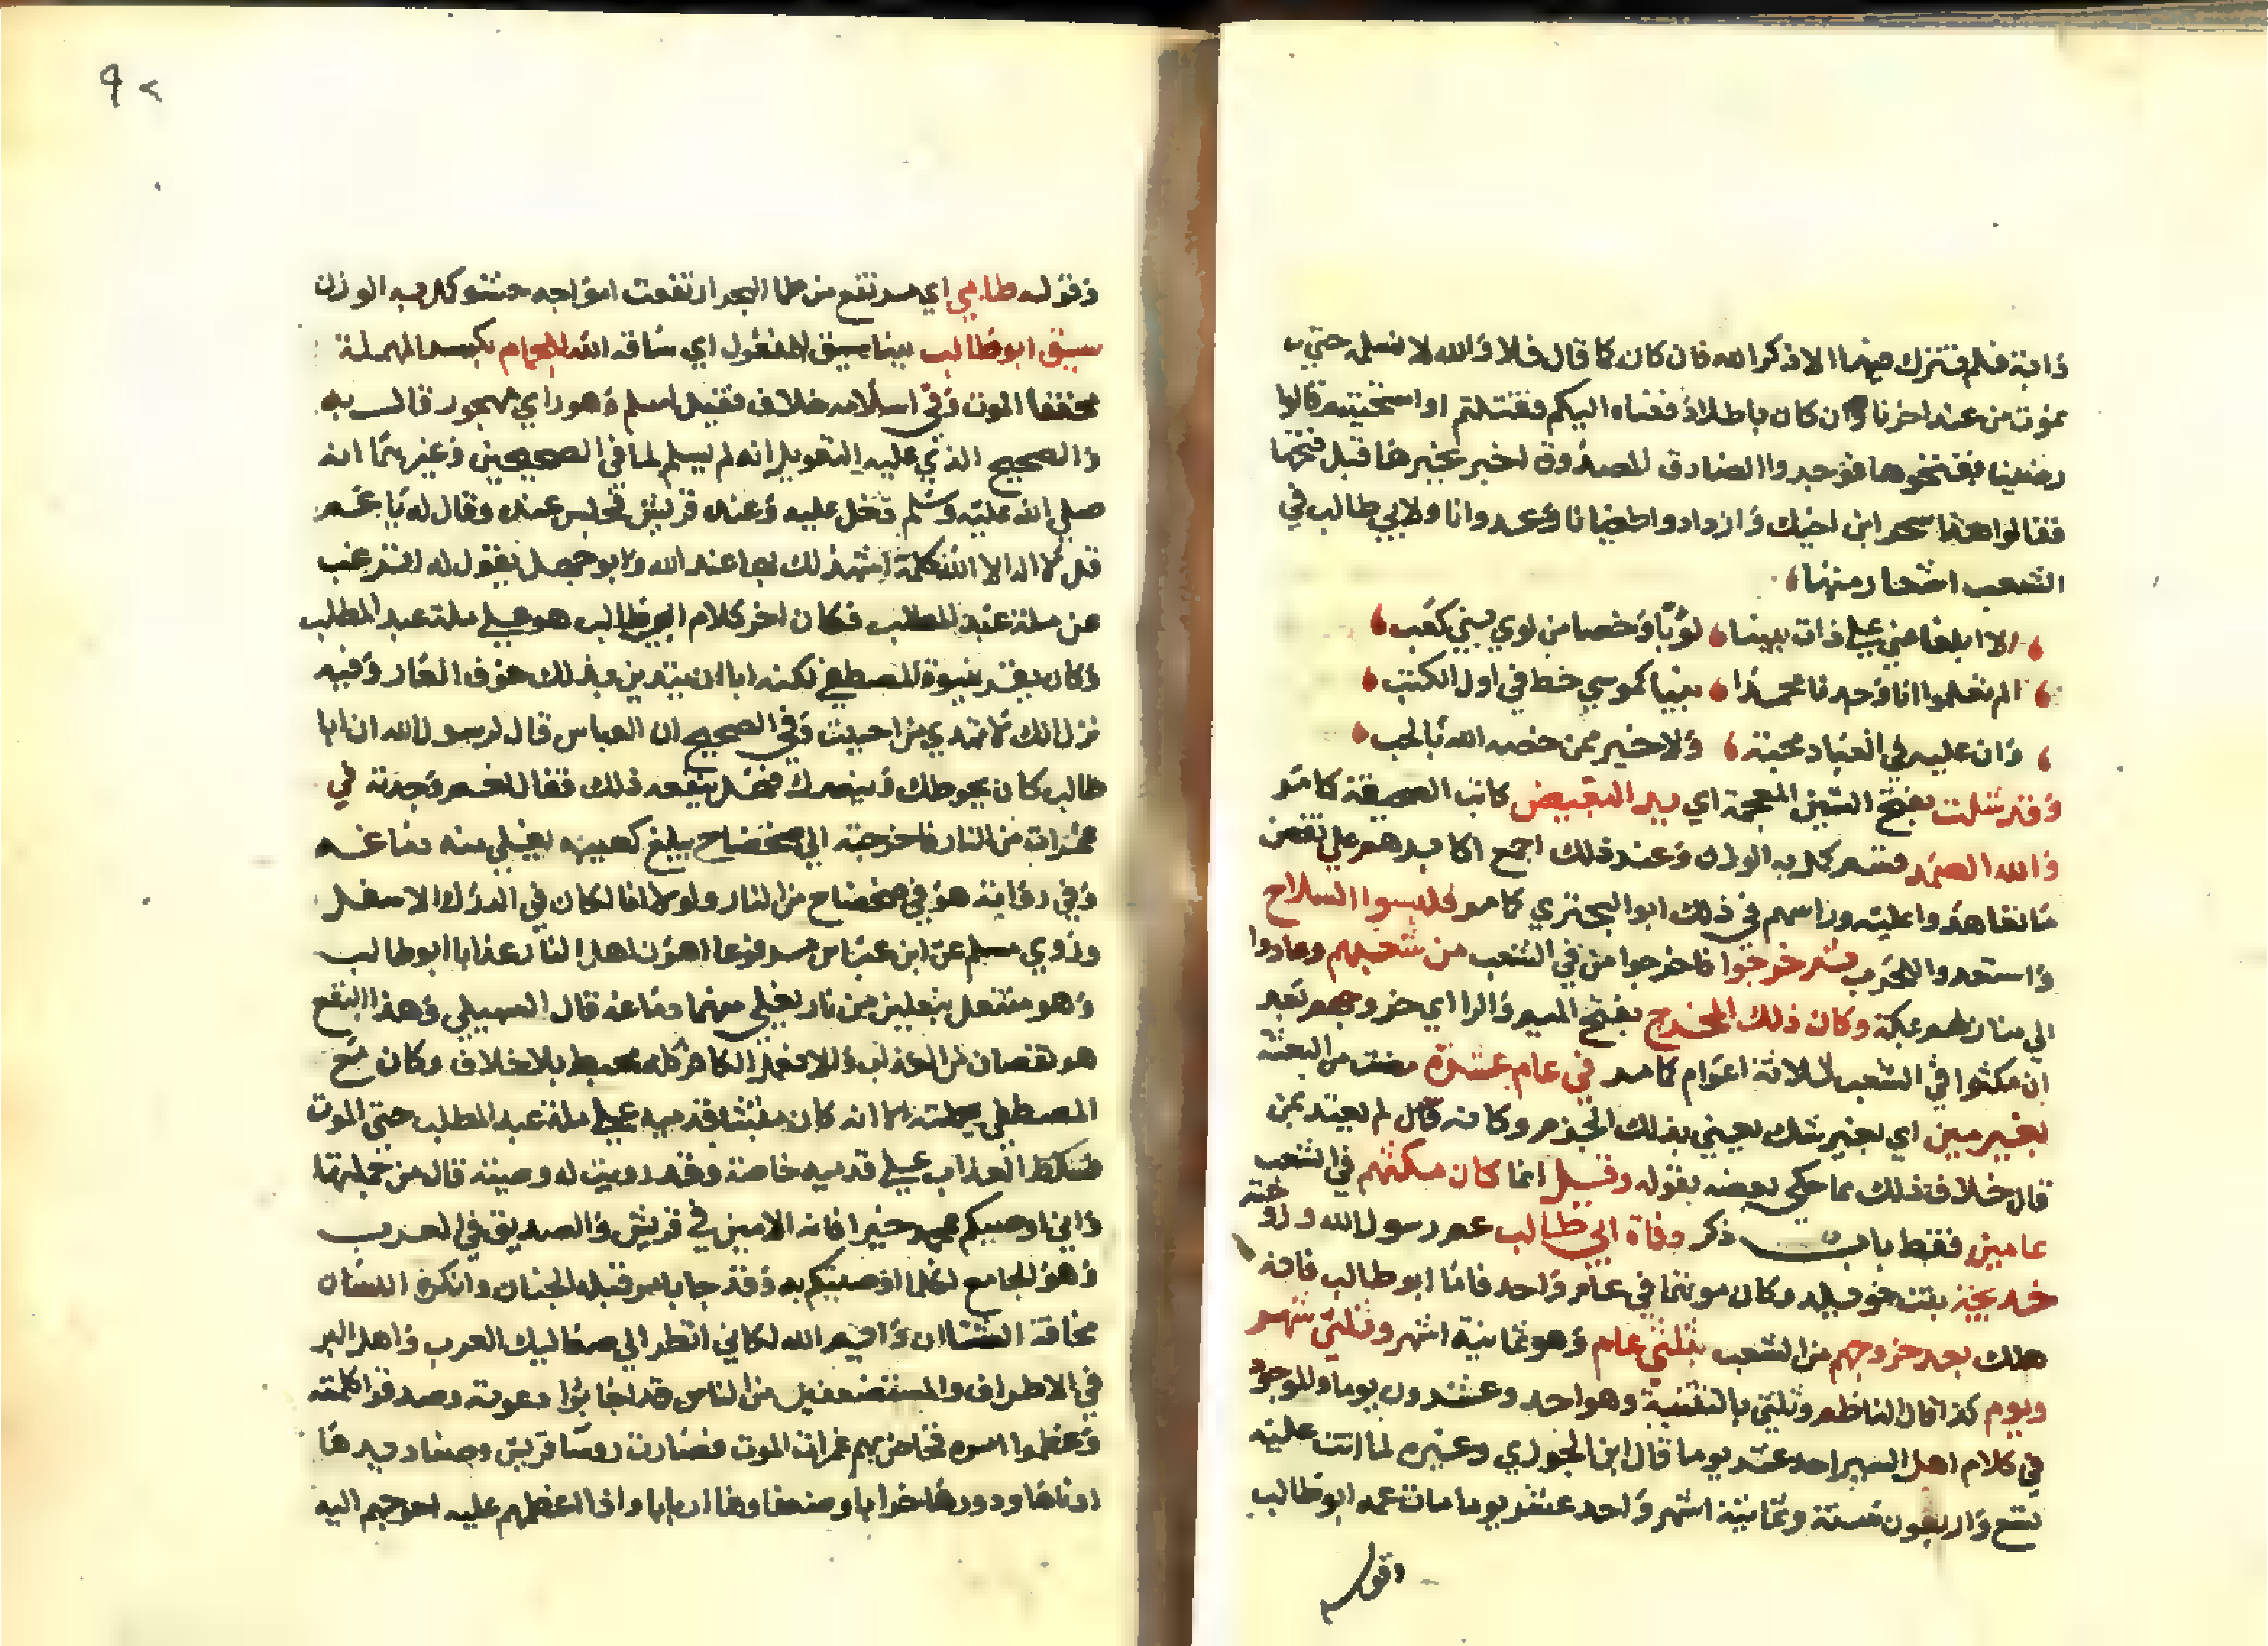 دابة فلم تترك فيها الا ذكر الله فان كان كما قال فلا والله لا نسلمه حتى
نموت من عند اخرنا وان كان باطلا دفعناه اليكم فقتلتم او استحييتم قالوا
رضينا ففتحوها فوجدوا الصادق المصدوق اخبر بخبرها قبل فتحها
فقالوا هذا سحر ابن اخيك وازدادوا طغيانا وعدوانا ولابي طالب في
الشعب اشعار منها
الا ابلغا عني على ذات بيننا لؤيا وخصا من لوي بني كعب
الم تعلموا انا وجدنا محمدا نبيا كموسى خط في اول الكتب
وان عليه في العباد محبة ولا خير ممن خصه الله بالحب
وقد شلت بفتح الشين المعجمة اي يد البغيض كاتب الصحيفة كما مر
والله الصمد تتم كل به الوزن وعند ذلك اجمع اكابرهم على نقض
ما تعاهدوا عليه وراسهم في ذلك ابو البختري كما مر فلبسوا السلاح
واستعدوا للحرب ثم خرجوا فاخرجوا من في الشعب من شعبهم وعادوا
الى منازلهم بمكة وكان ذلك المخرج بفتح الميم والرا اي خروجهم بعد
ان مكثوا في الشعب ثلاثة اعوام كما مر في عام عشرة مضت من البعثة
بغير مين اي بغير شك يعني بذلك الجزم وكانه قال لم يعتد بمن
قال خلاف ذلك مما حكى بعضه بقوله وقيل انما كان مكثهم في الشعب
عامين فقط باب ذكر وفاة ابي طالب عم رسول الله وزوجته
خديجة بنت خويلد وكان موتهما في عام واحد فاما ابو طالب فانه
هلك بعد خروجهم من الشعب بثلثي عام وهو ثمانية اشهر وثلثي شهر
ويوم كذا قال الناظم وثلثي بالتثنية وهو احد وعشرون يوما والموجود
في كلام اهل السير احد عشر يوما قال ابن الجوزي وغيره لما اتت عليه
تسع واربعون سنة وثمانية اشهر واحد عشر يوما مات عمه ابو طالب
وقوله
٩٢
وقوله طامي اي مرتفع من طما البحر ارتفعت امواجه حشو كمل به الوزن
سيق ابو طالب ببنا سيق للمفعول اي ساقه الله للحمام بكسر المهملة
مخففا الموت وفي اسلامه خلاف فقيل اسلم وهو راي مهجور قال به
والصحيح الذي عليه التعويل انه لم يسلم لما في الصحيحين وغيرهما انه
صلى الله عليه وسلم دخل عليه وعنده قريش فجلس عنده وقال له يا عم
قل لا اله الا الله كلمة اشهد لك بها عند الله وابو جهل يقول له اترغب
عن ملة عبد المطلب فكان اخر كلام ابي طالب هو على ملة عبد المطلب
وكان يقر بنبوة المصطفى لكنه ابا ان يتدين بذلك خوف العار وفيه
نزل انك لا تهدي من احببت وفي الصحيح ان العباس قال لرسول الله ان ابا
طالب كان يحوطك وينصرك فهل ينفعه ذلك فقال نعم وجدته في
غمرات من النار فاخرجته الى ضحضاح يبلغ كعبيه يغلي منه دماغه
وفي رواية هو في ضحضاح من النار ولولا انا لكان في الدرك الاسفل
وروي مسلم عن ابن عباس مرفوعا اهون اهل النار عذابا ابو طالب
وهو منتعل بنعلين من نار يغلي منهما دماغه قال السهيلي وهذا النفع
هو نقصان من العذاب والا فعمل الكافر كله محبط بلا خلاف وكان مع
المصطفى بجملته الا انه كان مثبتا قدميه على ملة عبد المطلب حتى الموت
فسلط العذاب على قدميه خاصة وقد رويت له وصية قال من جملتها
واني اوصيكم بمحمد خيرا فانه الامين في قريش والصديق في العرب
وهو الجامع لكل ما اوصيتكم به وقد جا بامر قبله الجنان وانكره اللسان
مخافة الشنآن وايم الله لكاني انظر الى صعاليك العرب واهل البر
في الاطراف والمستضعفين من الناس قد اجابوا دعوته وصدقوا كلمته
وعظموا امره فخاض بهم غمرات الموت فصارت روسا قريش وصناديدها
اذنابا ودورها خرابا وضعفاوها اربابا واذا اعظمهم عليه احوجهم اليه